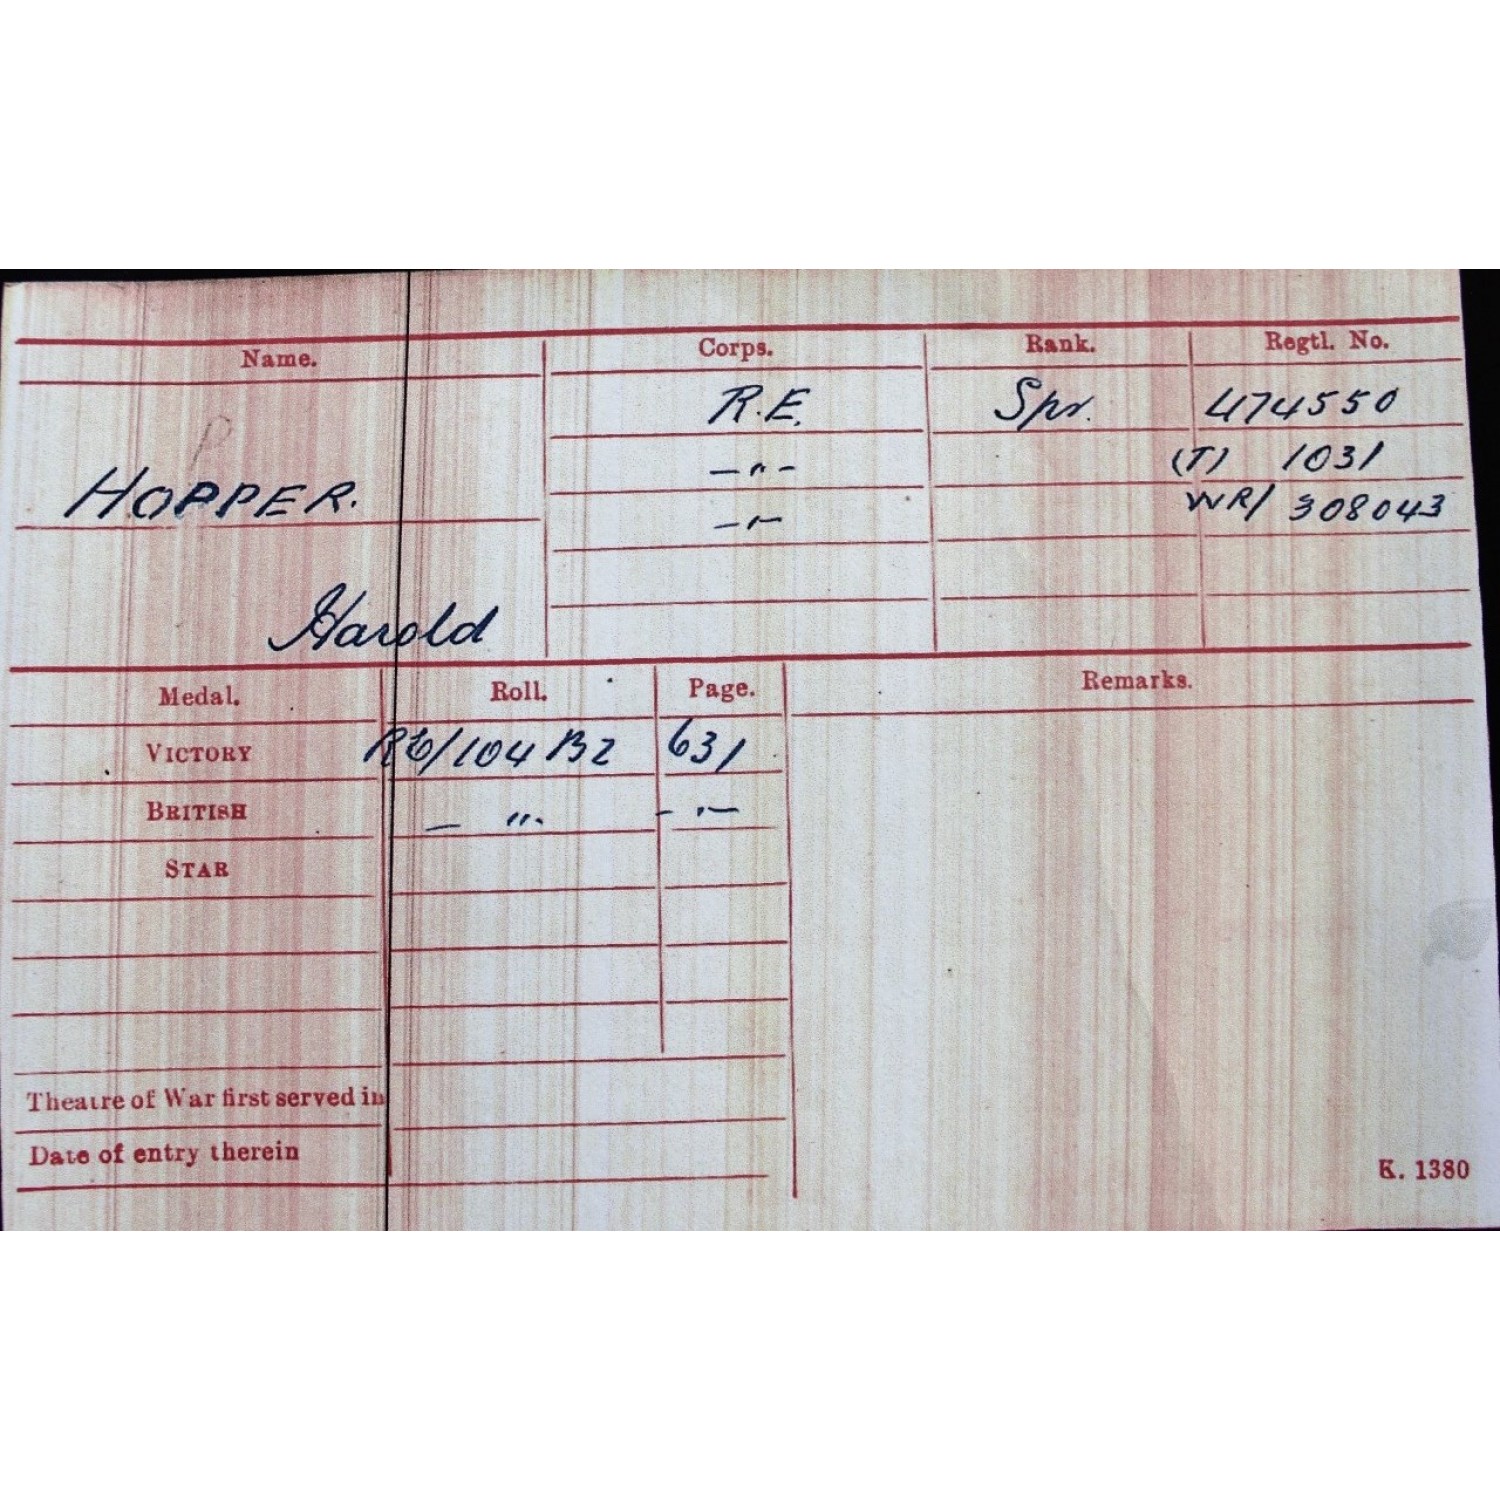 Name. Corps. Rank. Regtl. No.
R.E. Spr. 474550
HOPPER. —"— (T) 1031
—"— WR/ 308043
Harold
Medal. Roll. Page. Remarks.
VICTORY RE/104 B2 631
BRITISH — " — — " —
STAR
Theatre of War first served in
Date of entry therein
K. 1380